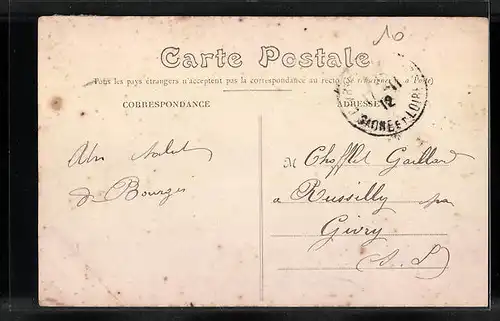 10
Carte Postale
Tous les pays étrangers n'acceptent pas la correspondance au recto (Se renseigner à la Poste)
CORRESPONDANCE
ADRESSE
12
SAONE ET LOIRE
Un salut
de Bourges
M Chofflet Gaillard
a Russilly par
Givry
(S. L)